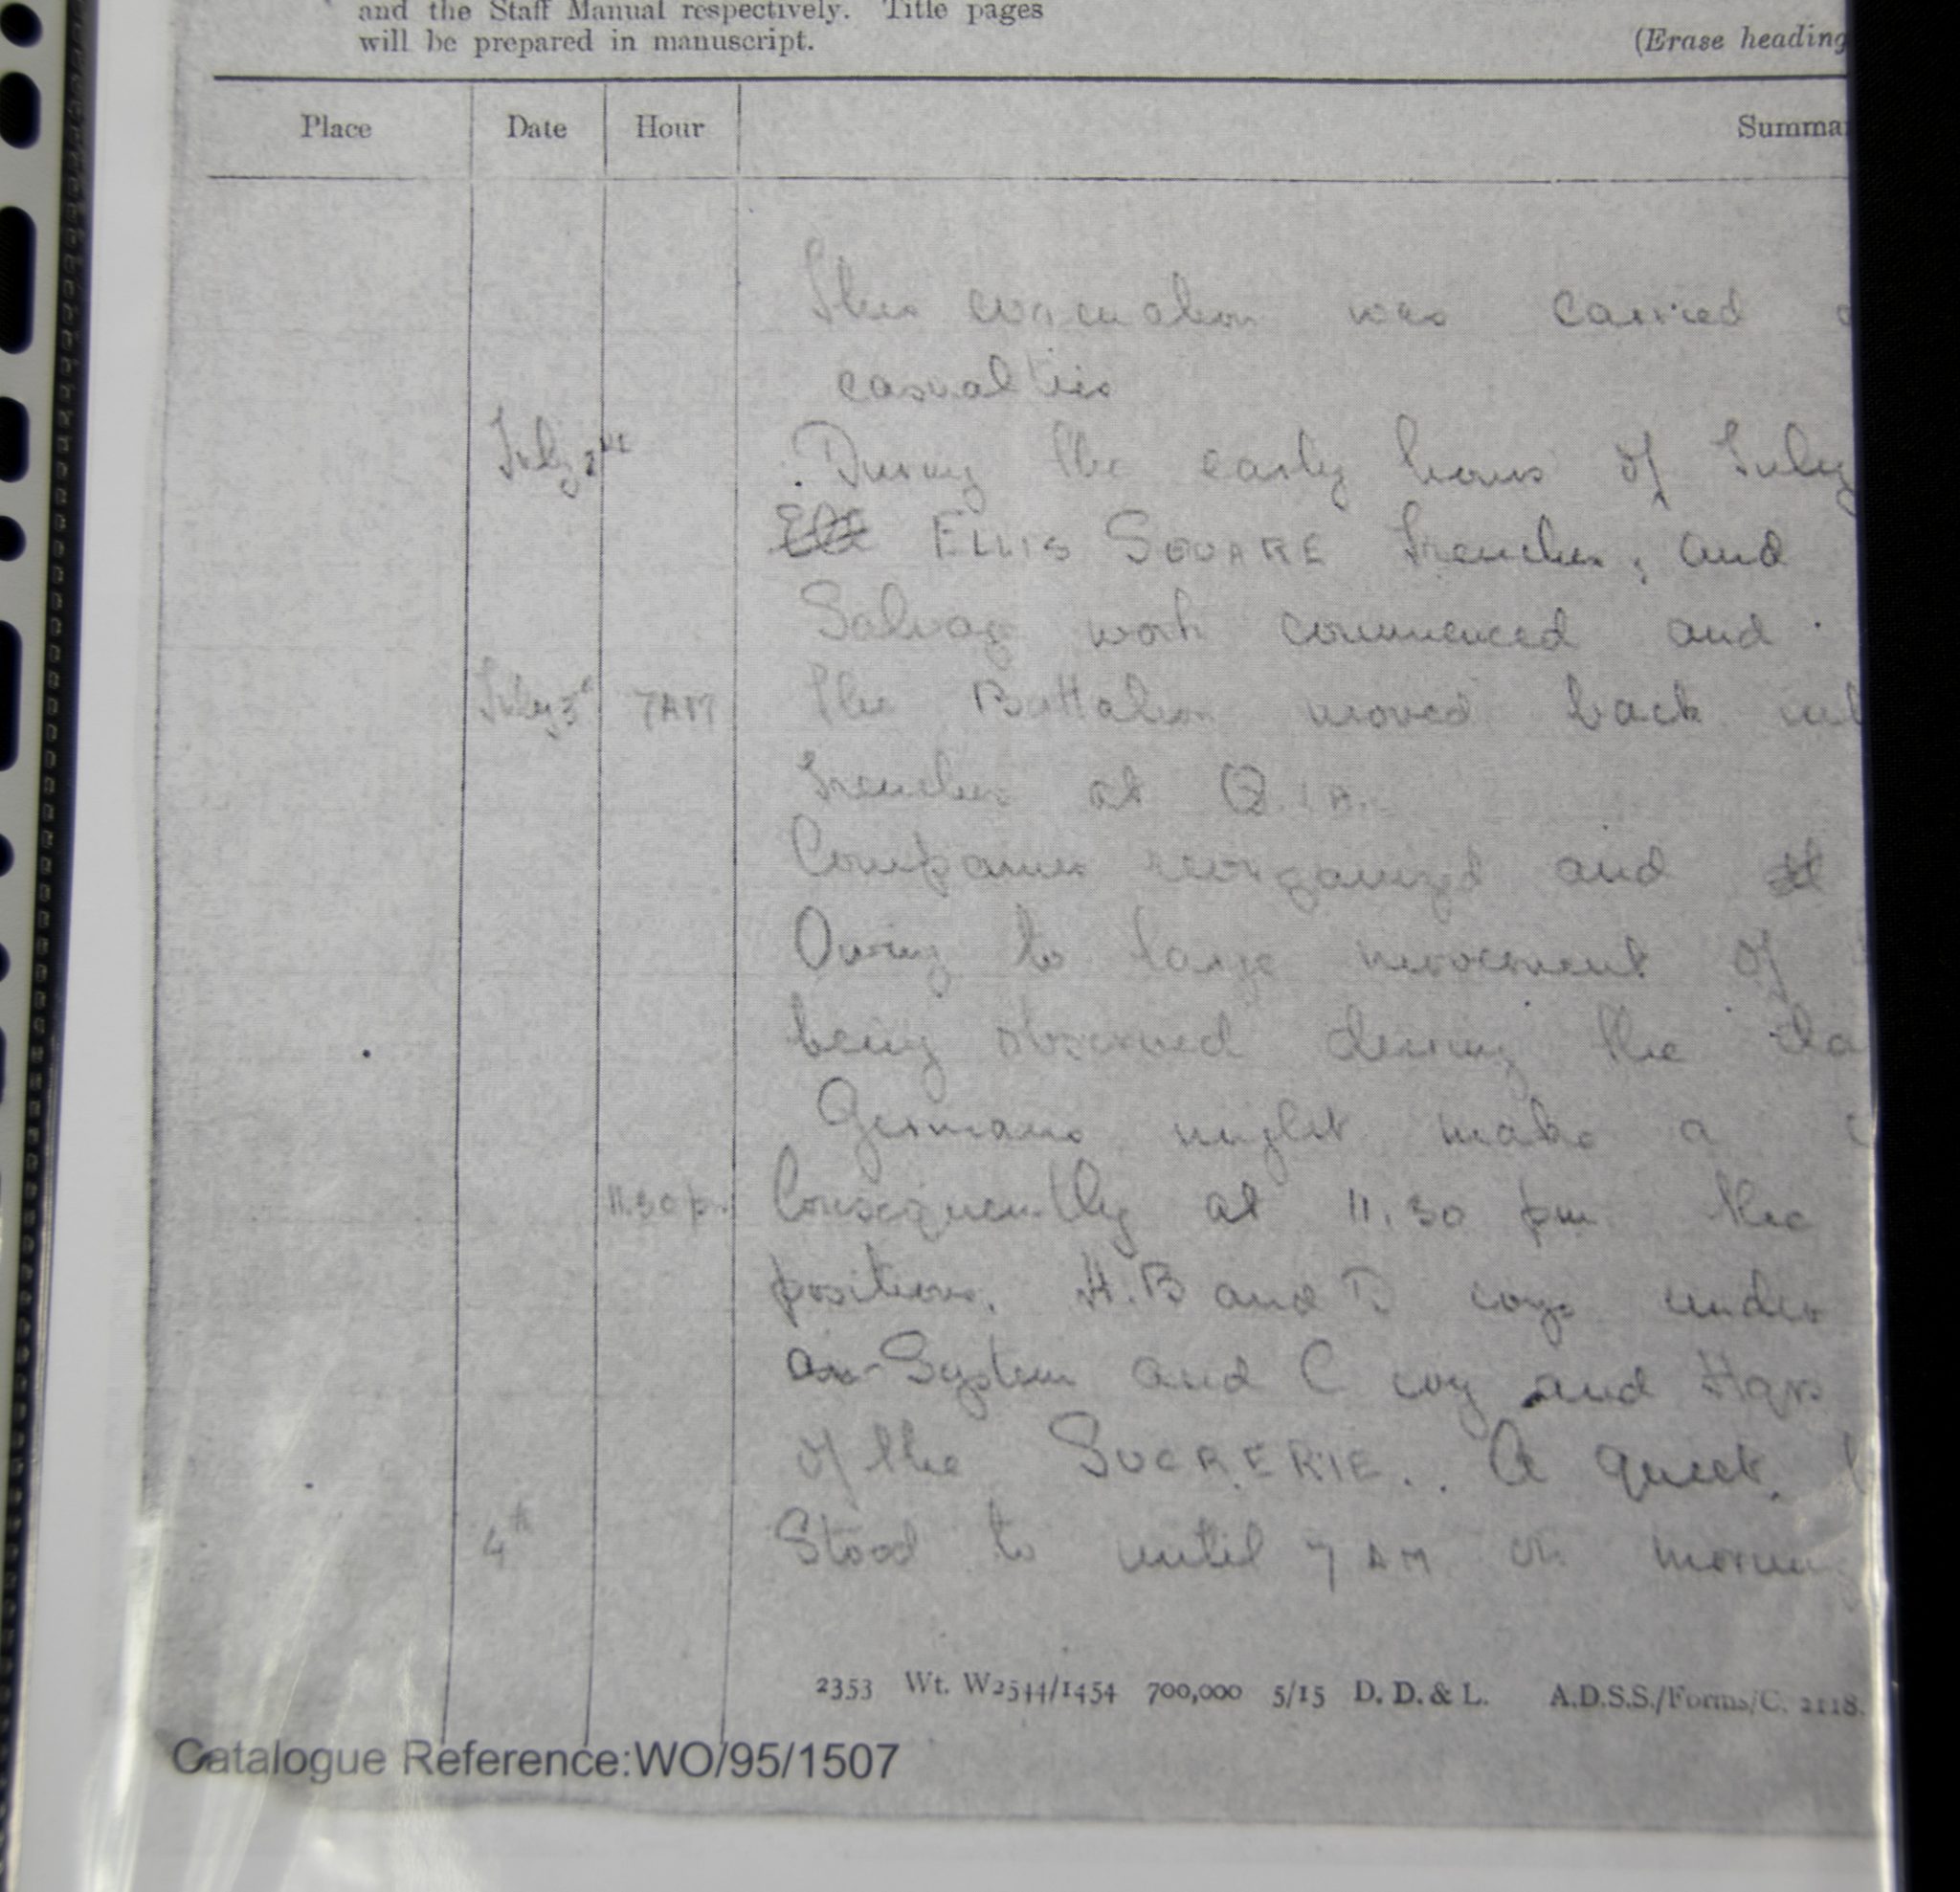 and the Staff Manual respectively. Title pages
will be prepared in manuscript.
(Erase heading
Place Date Hour Summa
This evacuation was carried
casualties
July 2nd During the early hours of July
ELLIS SQUARE trenches, and
Salvage work commenced and
July 3d 7AM The Battalion moved back
trenches at
Companies reorganized and
Owing to large movement of
being observed during the da
Germans might make a
11.30 p. Consequently at 11.30 pm the
positions. A.B and D coys under
System and C coy and Hqrs
of the SUCRERIE. A quiet
4th Stood to until 7 AM on mornin
2353 Wt. W2544/1454 700,000 5/15 D. D. & L. A.D.S.S./Forms/C. 2118.
Catalogue Reference:WO/95/1507